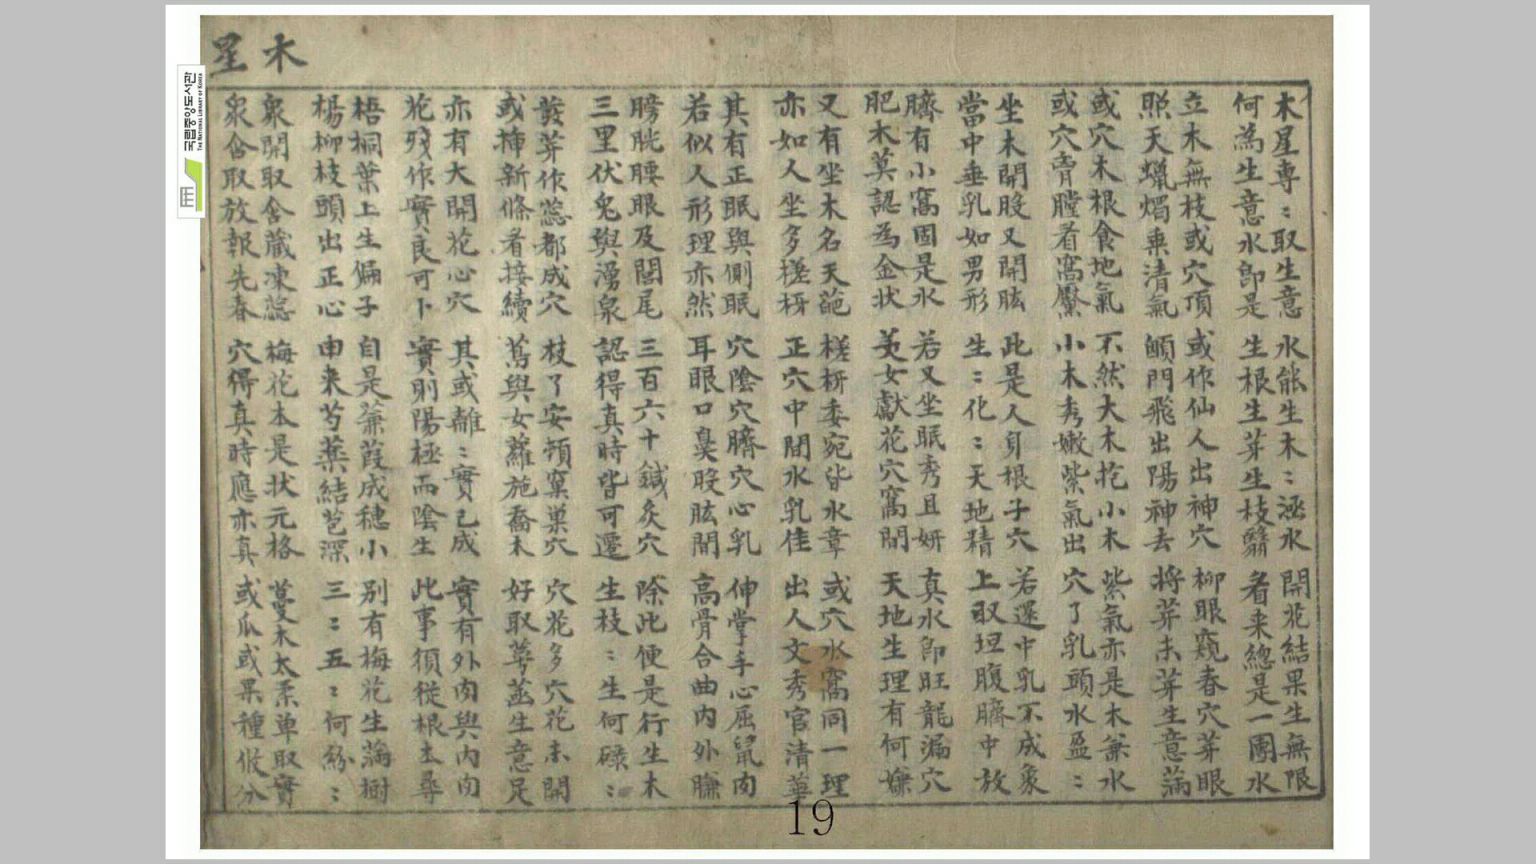 木星
木星専〻取生意 水能生木〻涵水 開花結果生無限
何為生意水即是 生根生芽生枝翳 看来總是一團水
立木無枝或穴頂 或作仙人出神穴 柳眼窺春穴芽眼
照天蠟燭乘清氣 顖門飛出陽神去 将芽未芽生意滿
或穴木根食地氣 不然大木抱小木 紫氣亦是木兼水
或穴膛看窩靨 小木秀嫩紫氣出 穴了乳頭水盈〻
坐木開股又開肱 此是人身根子穴 若還中乳不成象
當中垂乳如男形 生〻化〻天地精 上取坦腹臍中放
臍有小窩固是水 若又坐眠秀且妍 真水即旺龍漏穴
肥木莫認為金状 美女獻花穴窩間 天地生理有何嫌
又有坐木名天葩 槎枒委宛皆水章 或穴水窩同一理
亦如人坐多槎枒 正穴中間水乳佳 出人文秀官清華
其有正眠與側眠 穴陰穴臍穴心乳 伸掌手心屈鼠肉
若似人形理亦然 耳眼口臭股肱間 高骨合曲内外臁
膀胱腰眼及閭尾 三百六十鍼灸穴 除此便是行生木
三里伏兔與湧泉 認得真時皆可遷 生枝〻生何碌〻
發芽作蕊都成穴 枝了安頓窠巢穴 穴花多穴花未開
或揷新條看接續 蔦與女蘿施喬木 好取萼蕋生意足
亦有大開花心穴 其或離〻實已成 實有外肉與内肉
花残作實良可卜 實則陽極而陰生 此事須従根本尋
梧桐葉上生偏子 自是蒹葭成穗小 別有梅花生滿樹
楊柳枝頭出正心 由来芍藥結苞深 三〻五〻何紛〻
衆開取含藏凍蕊 梅花本是状元格 蔓木太柔單取實
衆含取放報先春 穴得真時應亦真 或瓜或果種收分
국립중앙도서관
THE NATIONAL LIBRARY OF KOREA
19